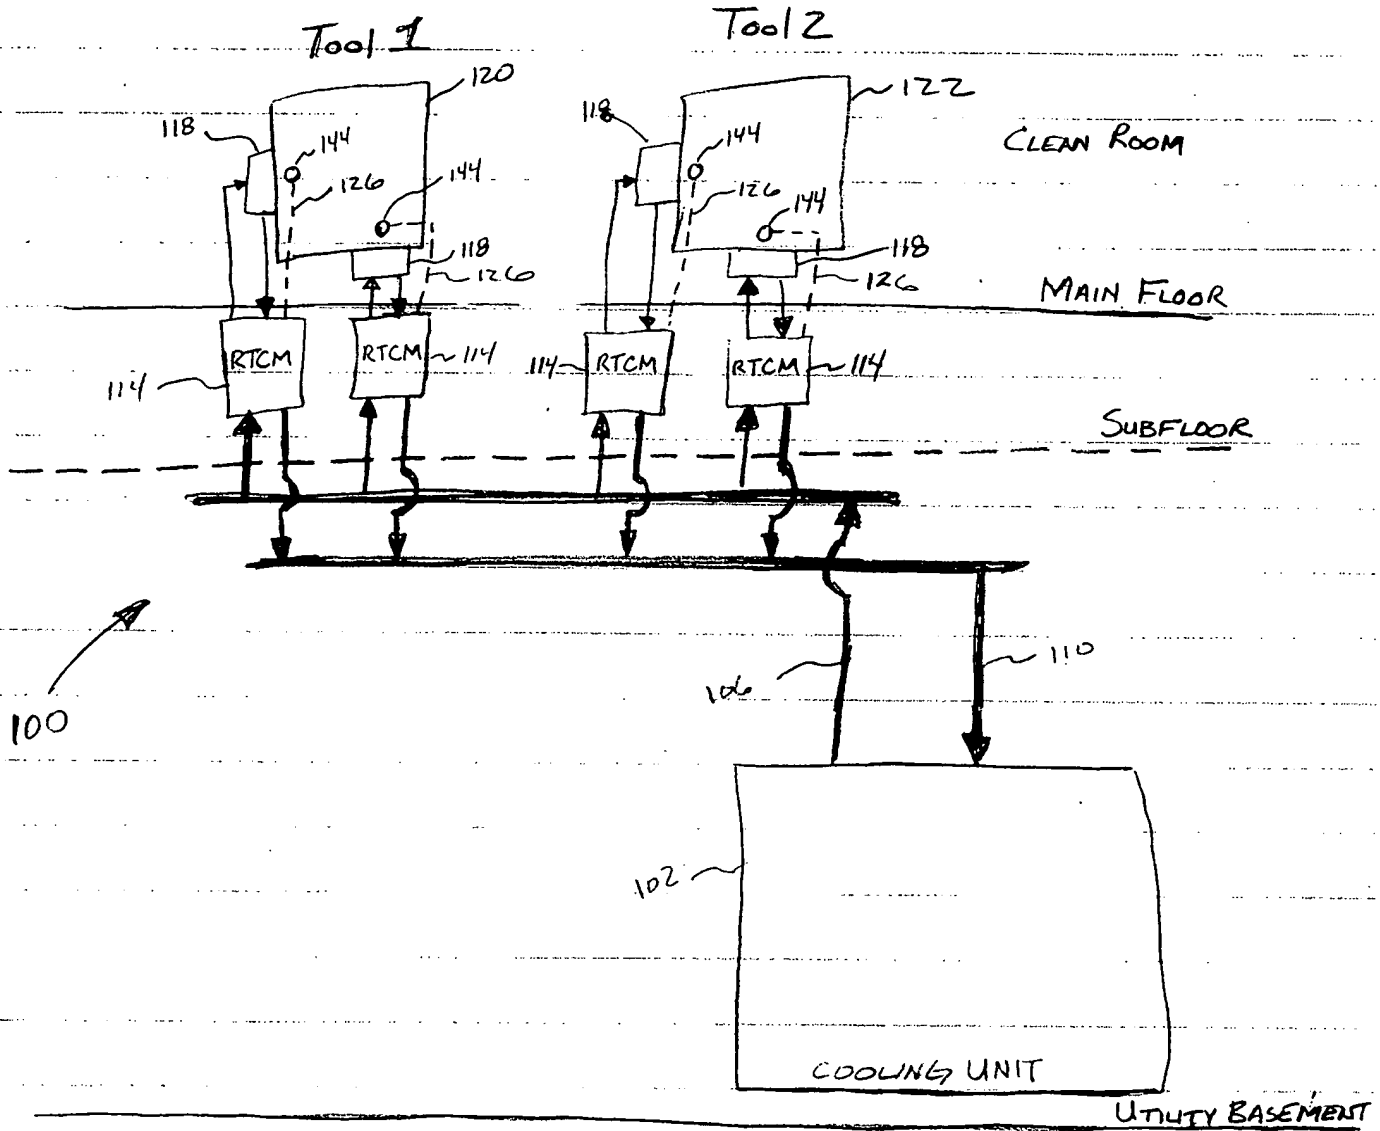 Tool 1
Tool 2
120
122
118
144
126
144
118
126
118
144
126
144
118
126
CLEAN ROOM
MAIN FLOOR
RTCM
114
RTCM
114
114
RTCM
RTCM
114
SUBFLOOR
100
106
110
102
COOLING UNIT
UTILITY BASEMENT